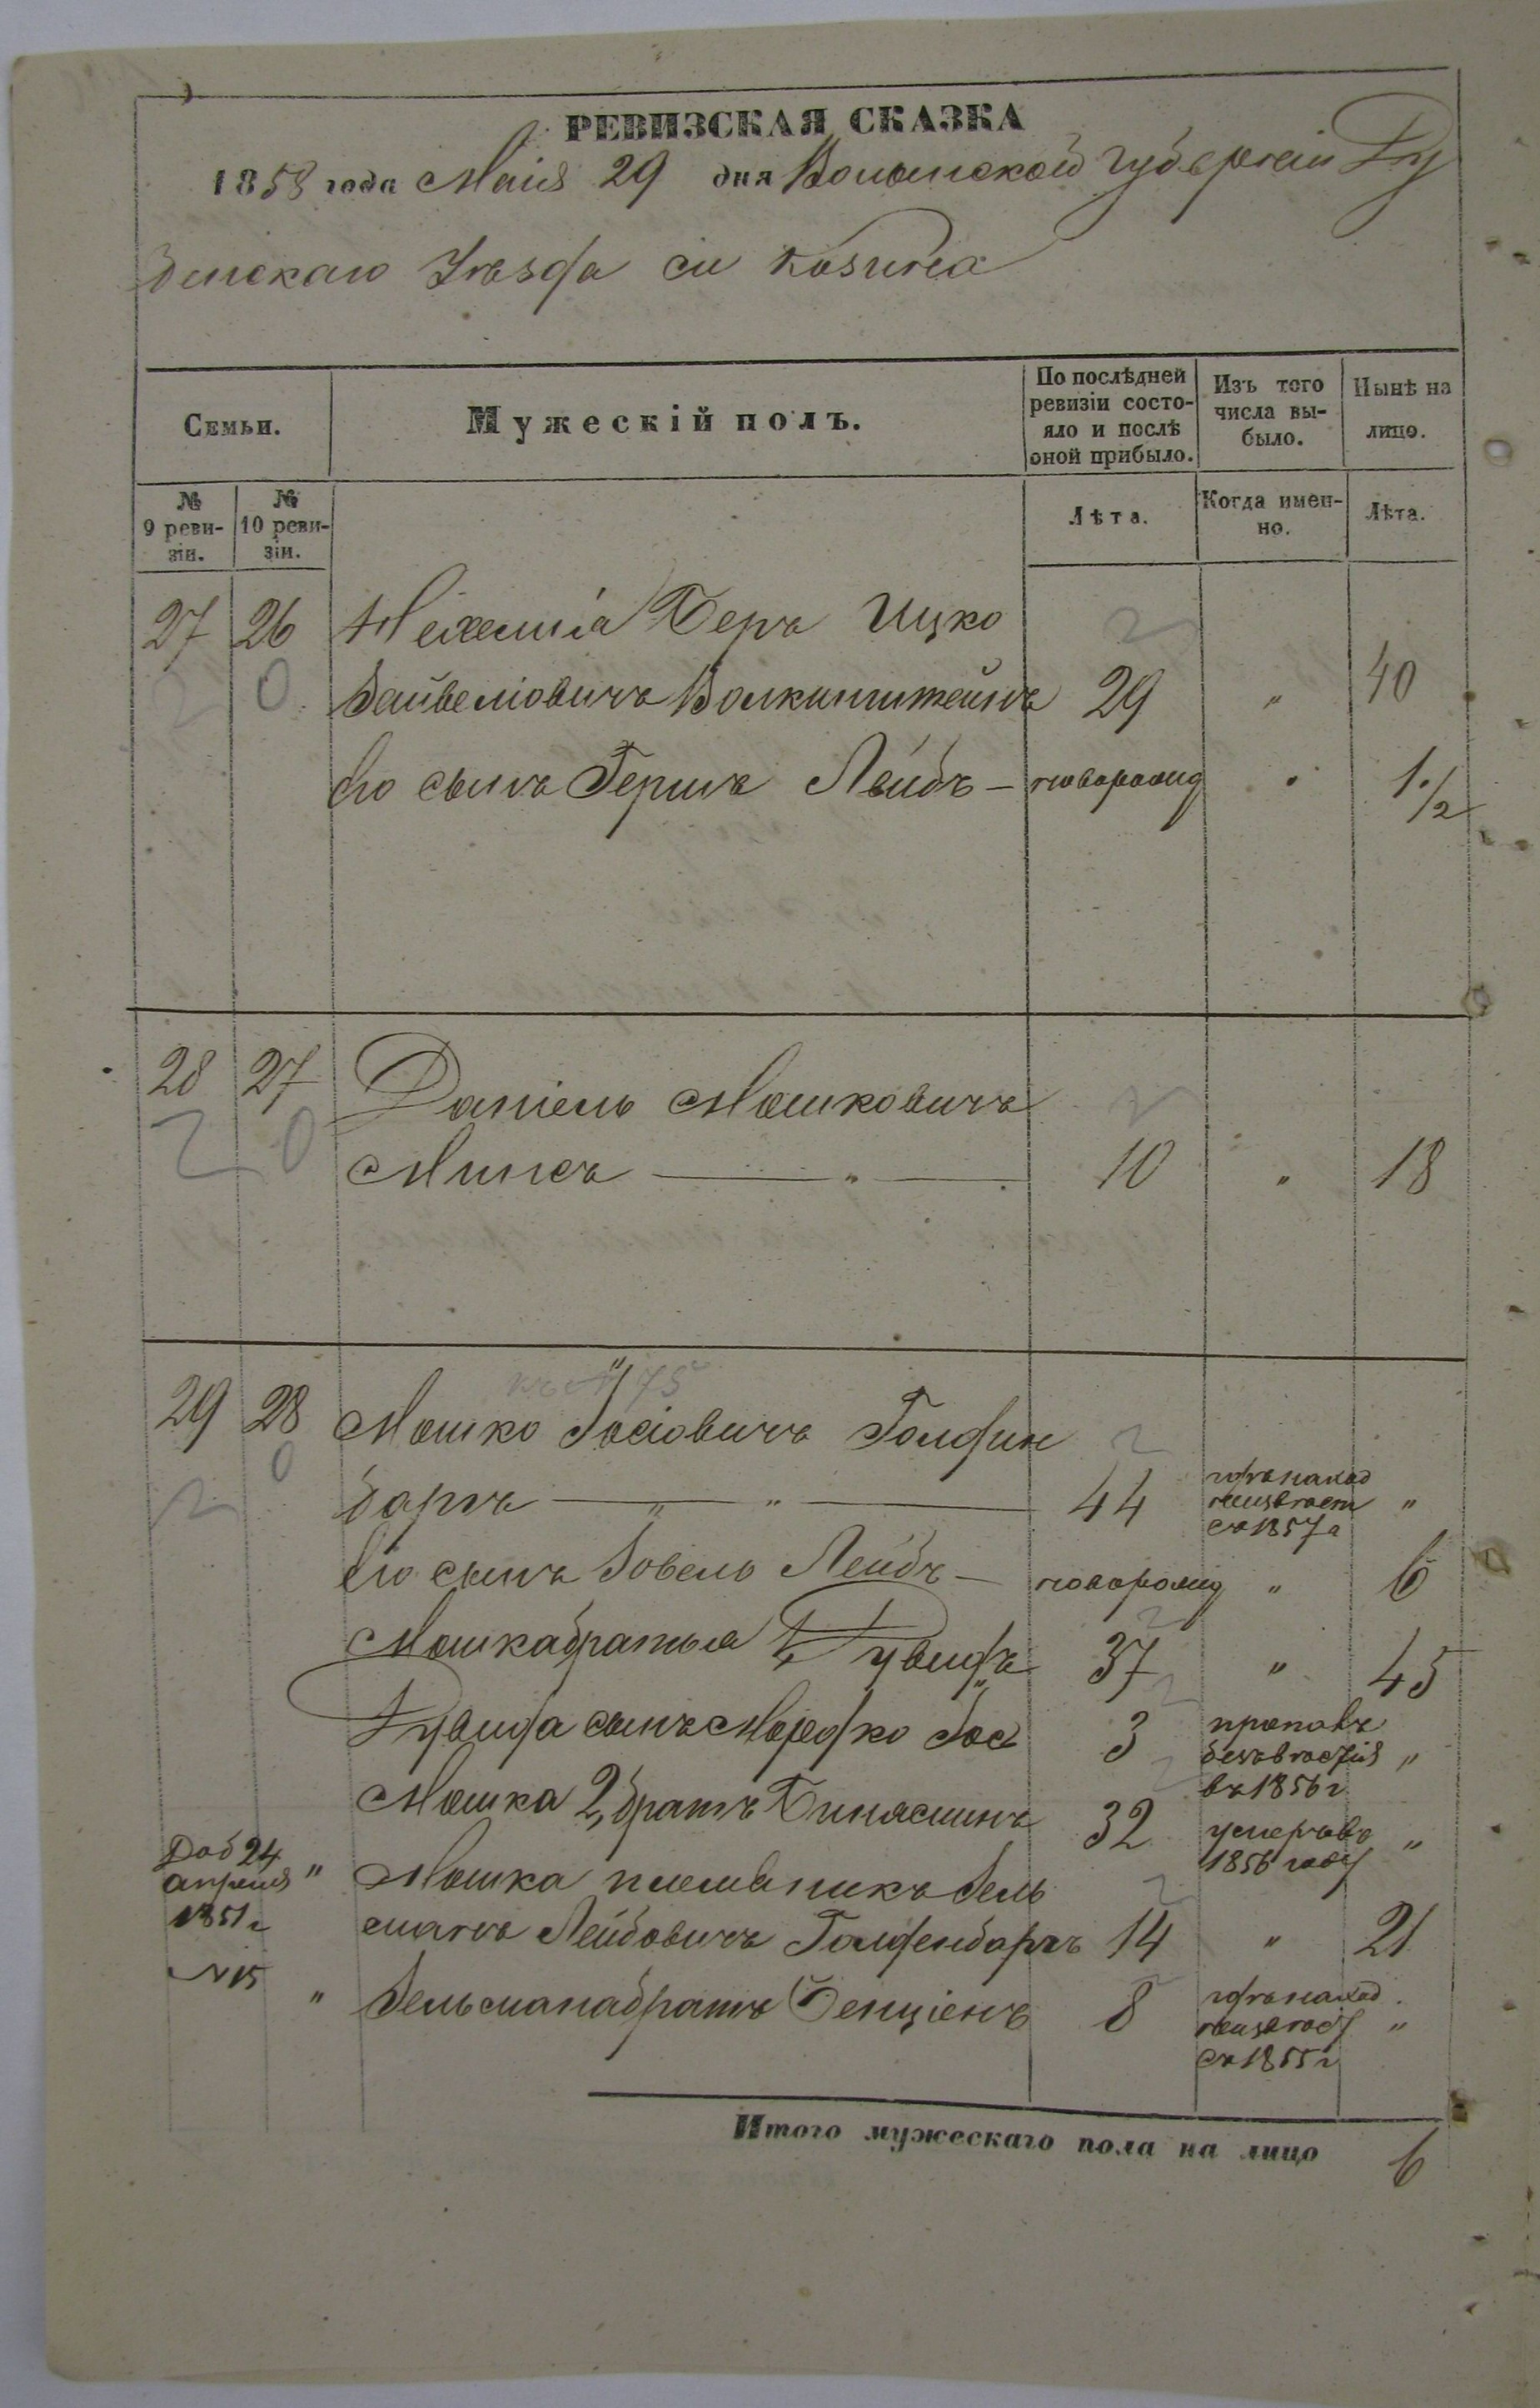 РЕВИЗСКАЯ СКАЗКА
1858 года Маія 29 дня Волынской губерніи Ду
бенскаго Уѣзда м Козина
Семьи.
Мужескій полъ.
По послѣдней ревизіи состо-
яло и послѣ оной прибыло.
Изъ того числа вы-
было.
Нынѣ на лицо.
№ 9 реви-
зіи.
№ 10 реви-
зіи.
Лѣта.
Когда имен-
но.
Лѣта.
27 26 Нехемія Беръ Ицко
Зайвеліовичъ Волкинштейнъ 29 " 40
Его сынъ Гершъ Лейбъ — новорожд " 1 1/2
28 27 Даніель Мошковичъ
Минсъ — " — 10 " 18
къ № 75
29 28 Мошко Іосіовичъ Голдин
баргъ — " — " — 44
гдѣ наход
неизвѣст "
съ 1857 г
Его сынъ Зовель Лейбъ — новорожд " 6
Мошка братья 1, Рувинъ 37 " 45
Рувина сынъ Мордко Іос 3
пропалъ
безъ вѣстія "
въ 1856 г
Мошка 2, братъ Биняминъ 32
умеръ въ "
1856 году
Доб 24
апреля "
1851 г
№ 15
Мошка племаникъ Зель
манъ Лейбовичъ Голденбаргъ 14 " 21
" Зельмана братъ Бенціенъ 8
гдѣ наход.
неизвѣст "
съ 1855 г
Итого мужескаго пола на лицо 6